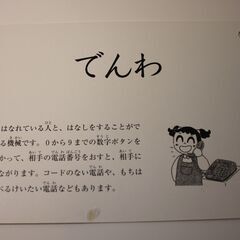 でんわ
はなれている人と、はなしをすることがで
る機械です。０から９までの数字ボタンを
かって、相手の電話番号をおすと、相手に
ながります。コードのない電話や、もちは
べるけいたい電話などもあります。